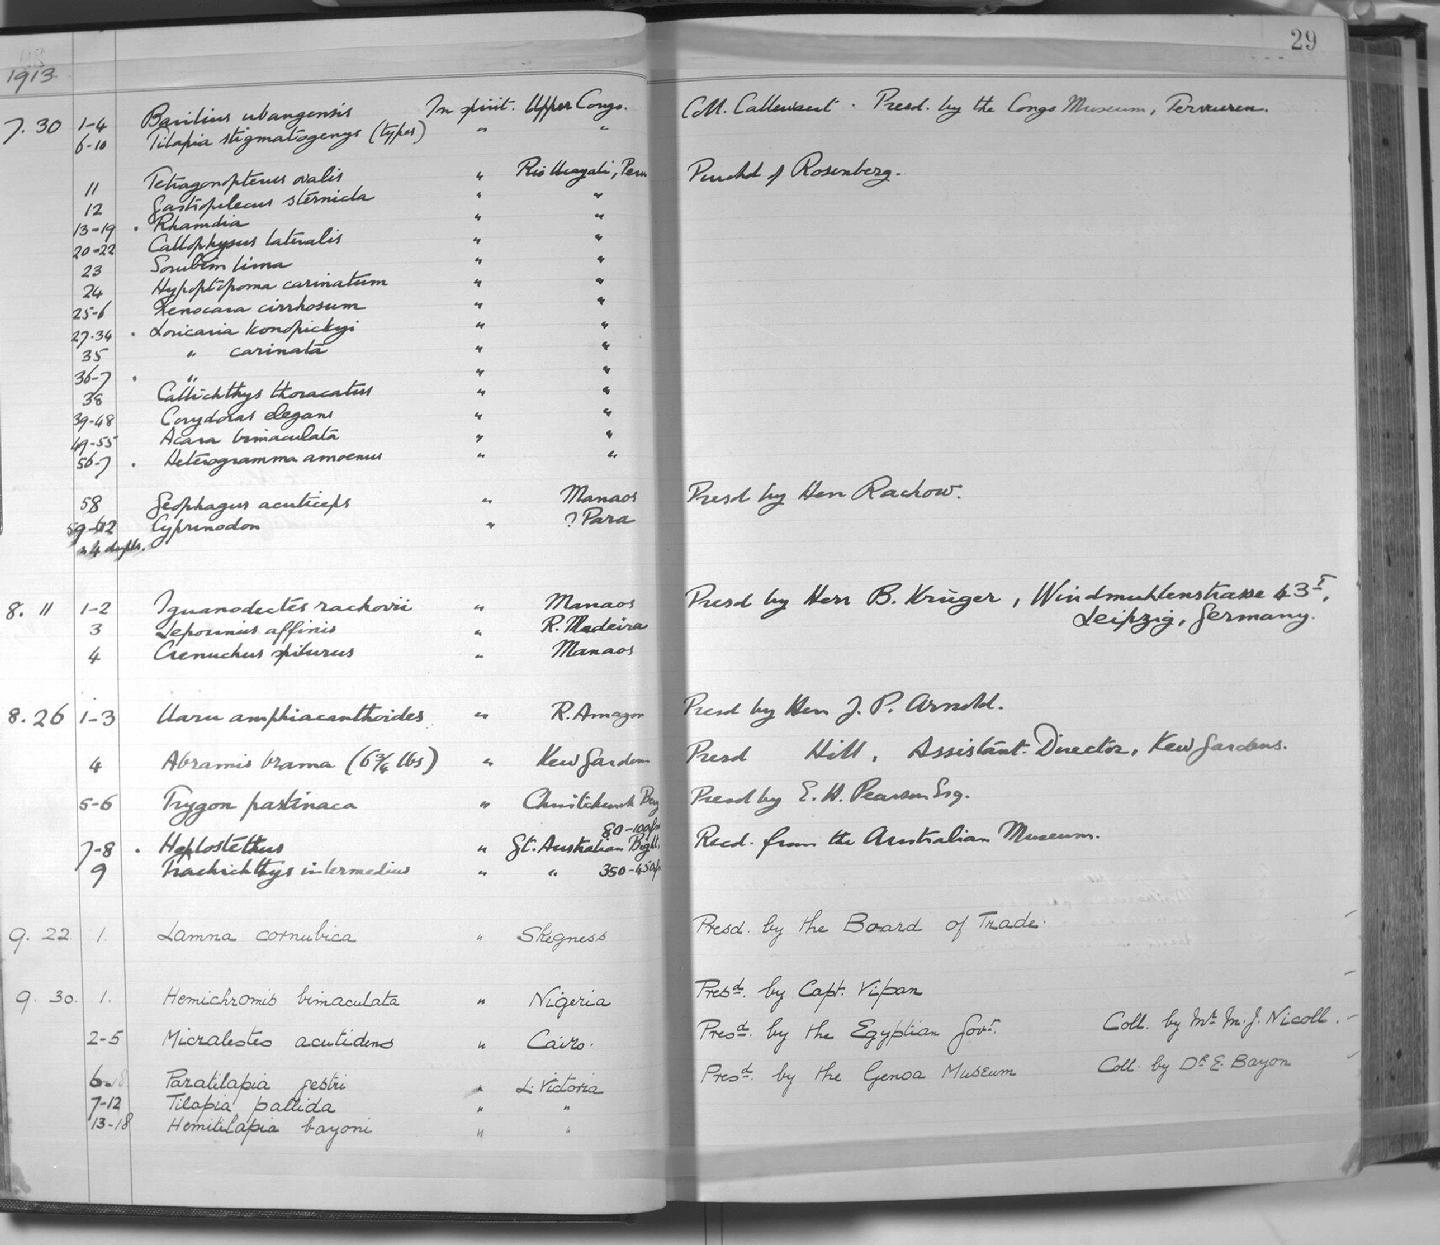 29
1913
7.30 1-4 Barilius ubangensis In spirit. Upper Congo. Coll. Callewaert. Presd. by the Congo Museum, Tervuren.
6-10 Tilapia stigmatogenys (types) " "
11 Tetragonopterus ovalis " Rio Ucayali, Peru Purchd of Rosenberg.
12 Gastropelecus sternicla " "
13-19 . Rhamdia " "
20-22 Callophysus lateralis " "
23 Sorubim lima " "
24 Hypoptopoma carinatum " "
25-6 Xenocara cirrhosum " "
27-34 . Loricaria konopickyi " "
35 " carinata " "
36-7 . " " "
38 Callichthys thoracatus " "
39-48 Corydoras elegans " "
49-55 Acara bimaculata " "
56-7 . Heterogramma amoenus " "
58 Geophagus acuticeps " Manaos Presd by Herr Rachow.
59-62 Cyprinodon " ? Para
& 4 dupls.
8.11 1-2 Iguanodectes rachovii " Manaos Presd by Herr B. Krüger, Windmuhlenstrasse 43 I,
Leipzig, Germany.
3 Leporinus affinis " R. Madeira
4 Crenuchus spilurus " Manaos
8.26 1-3 Uaru amphiacanthoides " R. Amazon Presd by Herr J. P. Arnold.
4 Abramis brama (6 3/4 lbs) " Kew Gardens Presd Hill, Assistant-Director, Kew Gardens.
5-6 Trygon pastinaca " Christchurch Bay Presd by E. H. Pearson Esq.
80-100fm
7-8 . Hoplostethus " Gt. Australian Bight, Recd. from the Australian Museum.
9 Trachichthys intermedius " " 350-450f
9.22 1. Lamna cornubica " Skegness Presd. by the Board of Trade.
9.30. 1. Hemichromis bimaculata " Nigeria Presd. by Capt. Vipan
2-5 Micralestes acutidens " Cairo. Presd. by the Egyptian Govt. Coll. by Mr. M. J. Nicoll.
6 Paratilapia gestri " L. Victoria Presd. by the Genoa Museum Coll. by Dr. E. Bayon
7-12 Tilapia pallida " "
13-18 Hemitilapia bayoni " "